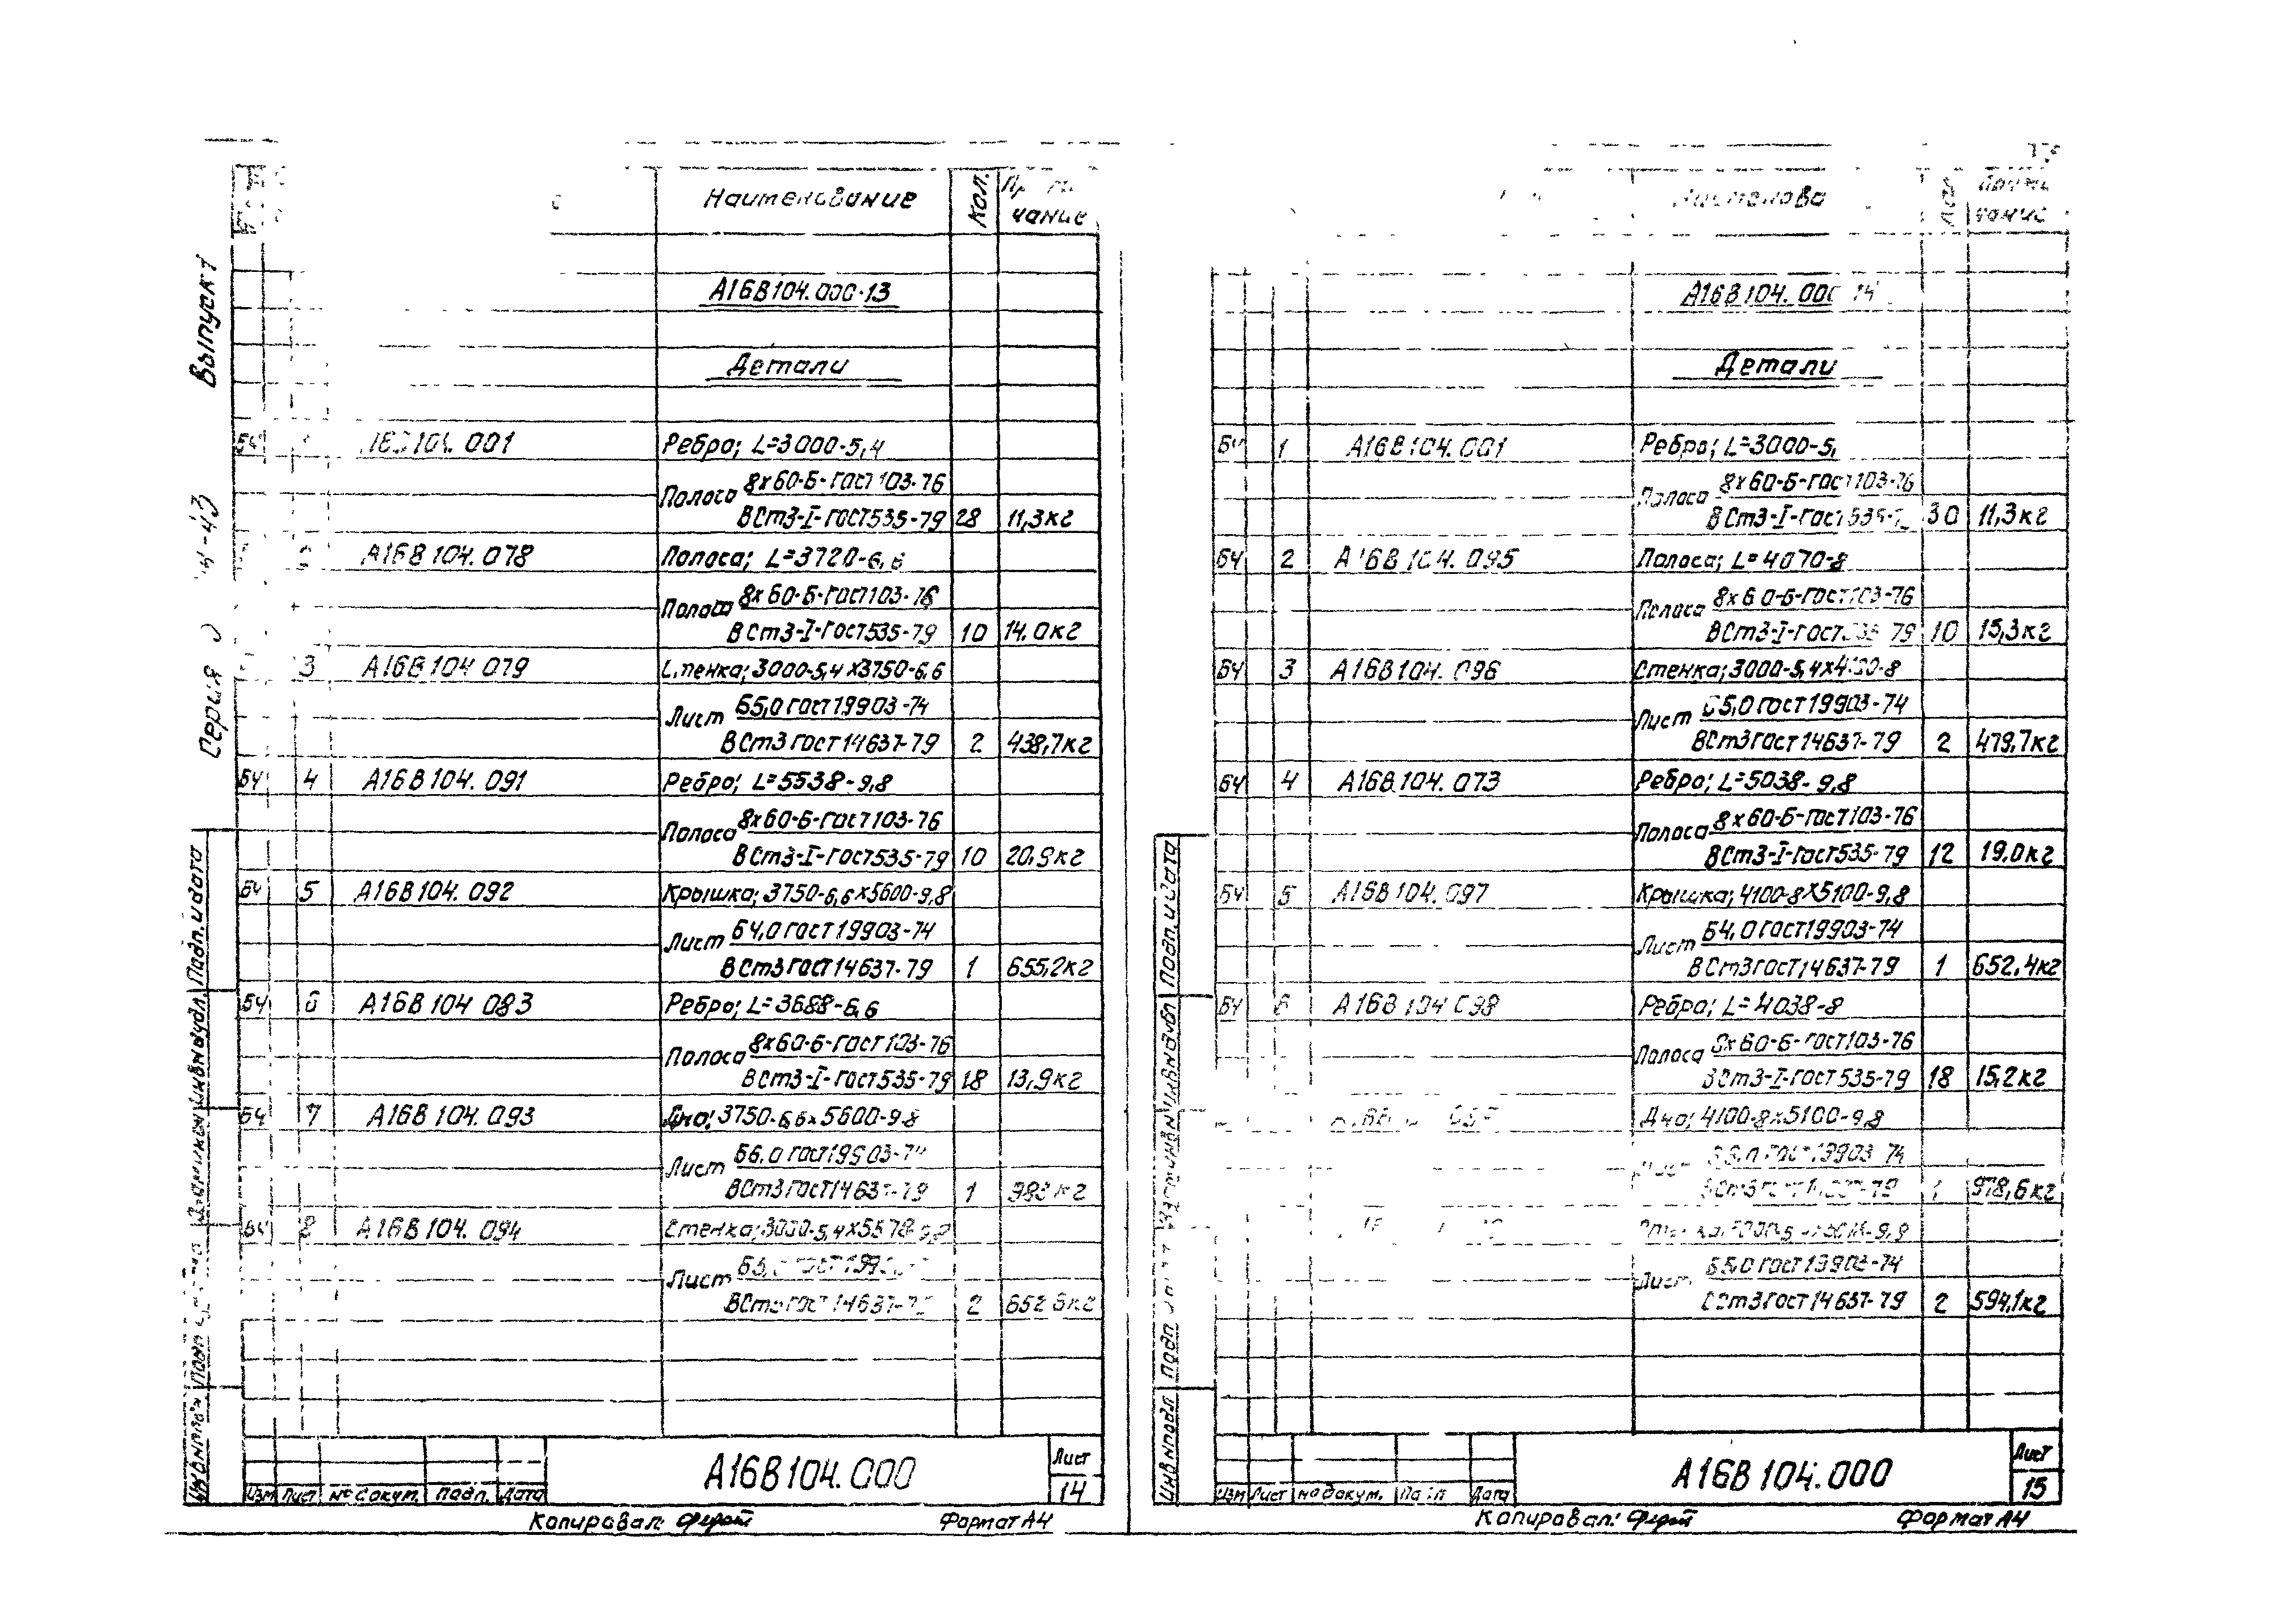 Выпуск 1
Серия
Наименование Кол. чание
А16В104.000-13
Детали
БЧ 104.001 Ребро; L=3000-5,4
Полоса 8х60-Б-ГОСТ103-76
ВСт3-I-ГОСТ535-79 28 11,3кг
А16В104.078 Полоса; L=3720-6,6
Полоса 8х60-Б-ГОСТ103-76
ВСт3-I-ГОСТ535-79 10 14.0кг
3 А16В104.079 Стенка; 3000-5,4х3750-6,6
Лист Б5,0 ГОСТ19903-74
ВСт3 ГОСТ14637-79 2 438,7кг
БЧ 4 А16В104.091 Ребро; L=5538-9,8
Полоса 8х60-Б-ГОСТ103-76
ВСт3-I-ГОСТ535-79 10 20,9кг
БЧ 5 А16В104.092 Крышка; 3750-6,6х5600-9,8
Лист Б4,0 ГОСТ19903-74
ВСт3 ГОСТ14637-79 1 655,2кг
БЧ 6 А16В104.083 Ребро; L=3688-6,6
Полоса 8х60-Б-ГОСТ103-76
ВСт3-I-ГОСТ535-79 18 13,9кг
БЧ 7 А16В104.093 Дно; 3750-6,6х5600-9,8
Лист Б6,0 ГОСТ19903-74
ВСт3 ГОСТ14637-79 1
БЧ 8 А16В104.094 Стенка; 3000-5,4х5578-9,8
Лист
ВСт3 ГОСТ14637-79 2
Подп. и дата
Изм Лист № докум. Подп. Дата
А16В104.000
Лист
14
Копировал: Формат А4
чание
А16В104.000-14
Детали
БЧ 1 А16В104.001 Ребро; L=3000-5,
Полоса 8х60-Б-ГОСТ103-76
ВСт3-I-ГОСТ535- 30 11,3кг
БЧ 2 А16В104.095 Полоса; L=4070-8
Полоса 8х60-Б-ГОСТ103-76
ВСт3-I-ГОСТ535-79 10 15,3кг
БЧ 3 А16В104.096 Стенка; 3000-5,4х4100-8
Лист Б5,0 ГОСТ19903-74
ВСт3 ГОСТ14637-79 2 479,7кг
БЧ 4 А16В104.073 Ребро; L=5038-9,8
Полоса 8х60-Б-ГОСТ103-76
ВСт3-I-ГОСТ535-79 12 19.0кг
БЧ 5 А16В104.097 Крышка; 4100-8х5100-9,8
Лист Б4,0 ГОСТ19903-74
ВСт3 ГОСТ14637-79 1 652,4кг
БЧ 6 А16В104.098 Ребро; L=4038-8
Полоса 8х60-Б-ГОСТ103-76
ВСт3-I-ГОСТ535-79 18 15,2кг
Дно; 4100-8х5100-9,8
Лист Б6,0 ГОСТ19903-74
1 978,6кг
Лист Б5,0 ГОСТ19903-74
ВСт3 ГОСТ14637-79 2 594,1кг
Инв № подл Подп. и дата
Изм Лист № докум. Подп Дата
А16В104.000
Лист
15
Копировал: Формат А4